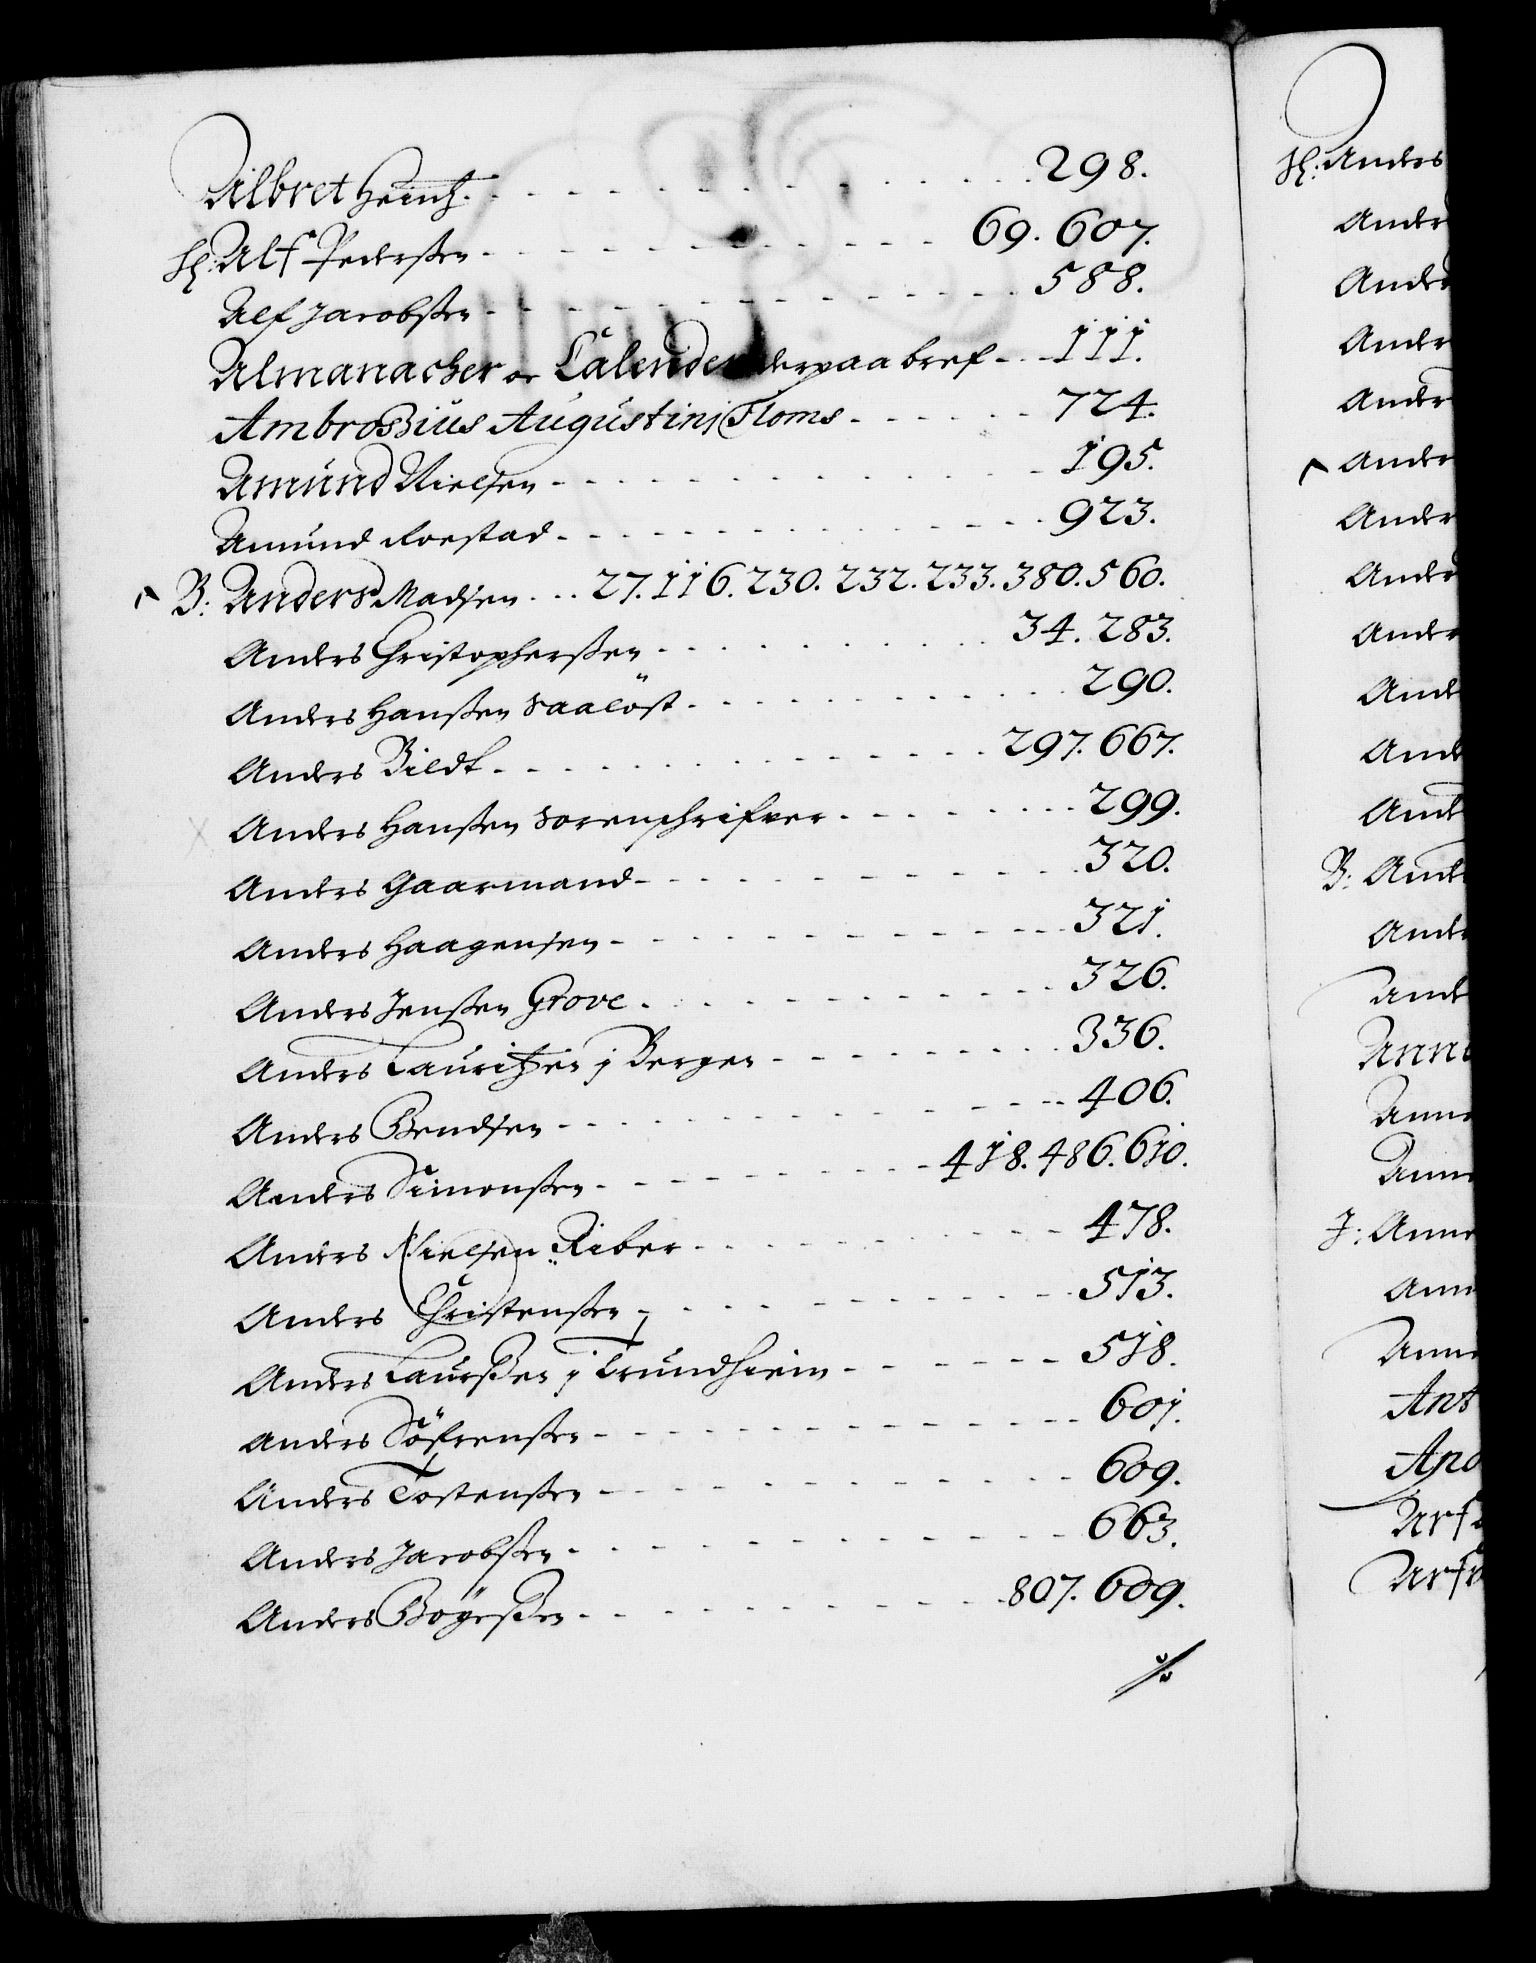 Albret Heinß. 298.
H: Alf Pederßen 69. 607.
Alf Jacobßen 588.
Almanacher oc Calender derpaa bref 111.
Ambrosius Augustinj Floms 724.
Amund Nielsen 195.
Amund Foestad 923.
B: Anders Madsen 27. 116. 230. 232. 233. 380. 560.
Anders Christopherßen 34. 283.
Anders Hanßen 290.
Anders Bildt 297. 667.
Anders Hanßen Sorenschrifver 299.
Anders Gaarmand 320.
Anders Haagensen 321.
Anders Jenßen Grove 326.
Anders Lauritzen j Bergen 336.
Anders Bendsen 406.
Anders Simonßen 418. 486. 610.
Anders Nielsen Riber 478.
Anders Christenßen 513.
Anders Laurßen j Trundhiem 518.
Anders Söfrenßen 601.
Anders Tostenßen 609.
Anders Jacobßen 663.
Anders Böyeßen 807. 609.
%
H: Anders
Ander
Ander
Ander
Ander
Ander
Ander
Ander
Ander
Ande
Ande
Ande
B: Ande
Ande
Ande
Anne
Anne
Anne
J: Anne
Ann
Anne
Ant
Apo
Arf
Arf